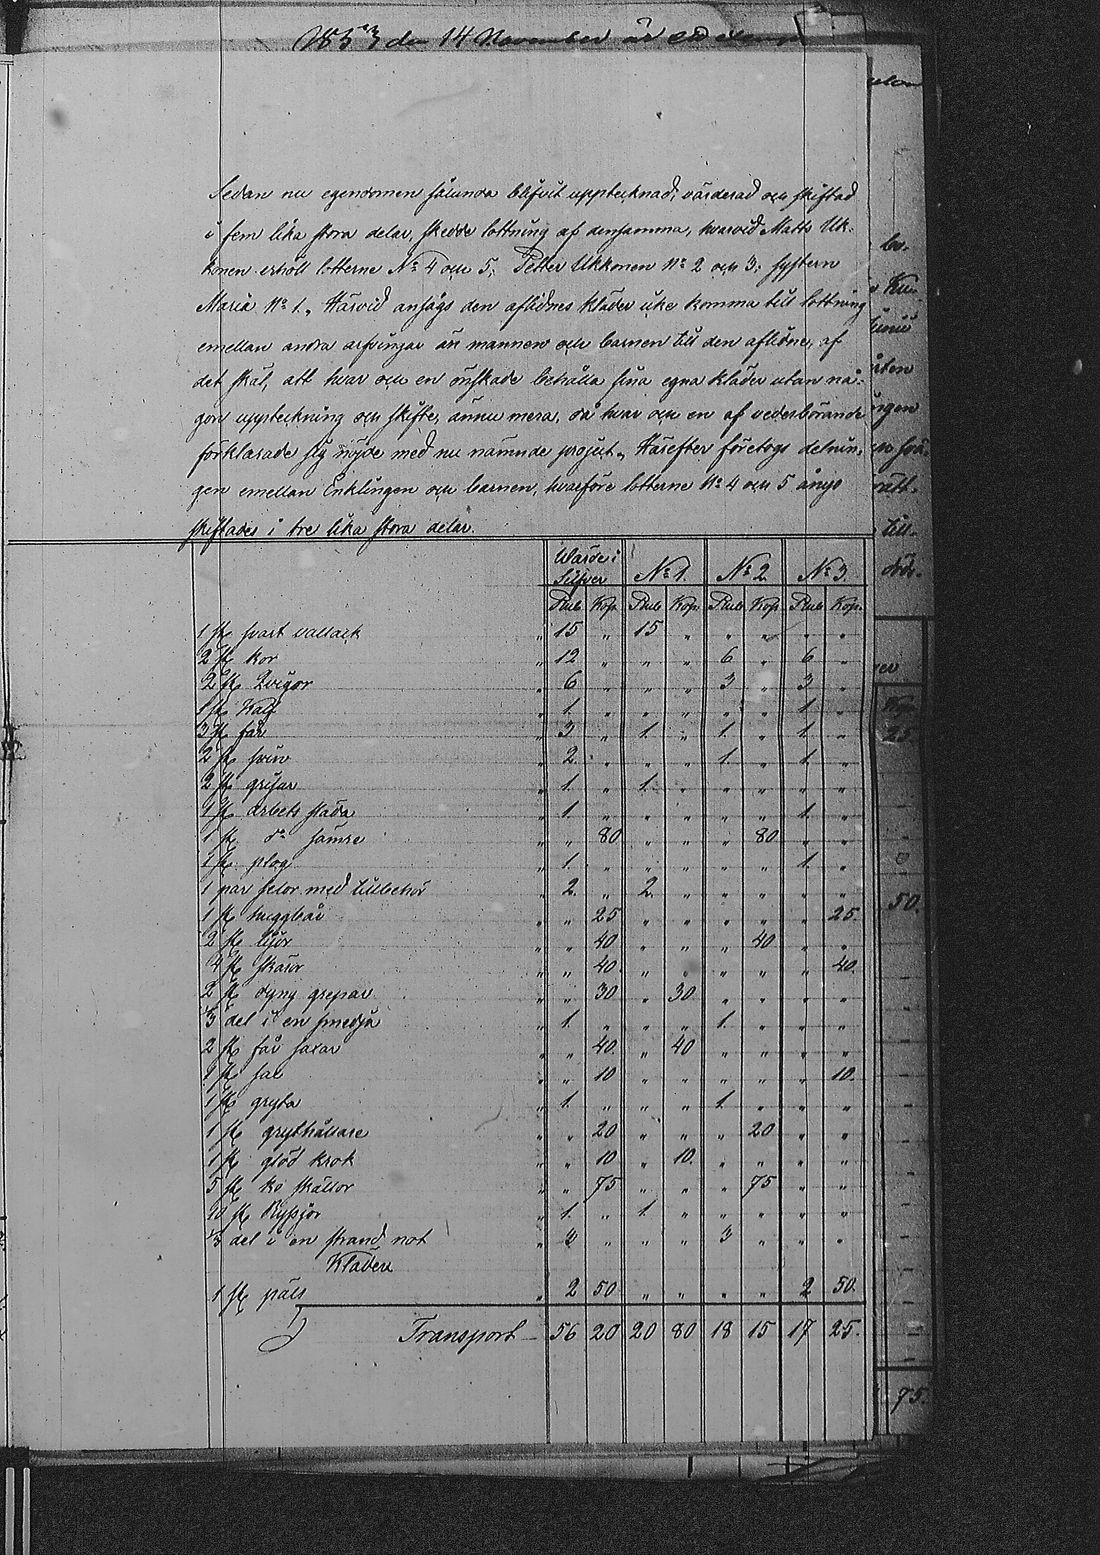 1853 den 14 November är
Sedan nu egendomen sålunda blifvit upptecknad, värderad och skiftad
i fem lika stora delar, skedde lottning af densamma, hvarvid Matts Uk-
konen erhöll lotterne No 4 och 5, Petter Ukkonen No 2 och 3, systern
Maria No 1. Härvid ansågs den aflidnes kläder icke komma till lottning
emellan andra arfvingar än mannen och barnen till den aflidne, af
det skäl, att hvar och en önskade behålla sina egna kläder utan nå-
gon uppteckning och skifte, ännu mera, då hvar och en af vederbörande
förklarade sig nöjde med nu nämnde project. Härefter företogs delnin-
gen emellan Enklingen och barnen, hvarföre lotterne No 4 och 5 ånyo
skiftades i tre lika stora delar.
Värde i Silfver No 1. No 2 No 3.
Rub. Kop. Rub. Kop. Rub. Kop. Rub. Kop.
1 st svart vallack " 15 " 15 " " " " "
2 st kor " 12 " " " 6 " 6 "
2 st Qvigor " 6 " " " 3 " 3 "
1 st Kalf " 1. " " " " " 1. "
3 st får " 3 " 1 " 1 " 1 "
2 st svin " 2. " " " 1 " 1 "
2 st grisar " 1. " 1. " " " " "
1 st arbets släda " 1 " " " " " 1. "
1 st do sämre " " 80 " " " 80 " "
1 st plog " 1. " " " " " 1. "
1 par selor med tillbehör " 2. " 2. " " " " "
1 st " " 25 " " " " " 25.
2 st lijor " " 40 " " " 40 " "
4 st skäror " " 40 " " " " " 40
2 st dyng grepar " " 30 " 30 " " " "
1/3 del i en smedja " 1. " " " 1. " " "
2 st får saxar " " 40. " 40 " " " "
1 st " " 10 " " " " " 10.
1 st gryta " 1. " " " 1. " " "
1 st grythållare " " 20 " " " 20 " "
1 st glöd krok " " 10 " 10. " " " "
5 st ko skällor " " 75 " " " 75 " "
10 st Ryssjor " 1. " 1. " " " " "
1/3 del i en strand not " 3 " " " 3 " " "
Kläder
1 st päls " 2 50 " " " " 2 50.
Transport 56 20 20 80 18 15 17 25.
Kop.
25.
50.
75.